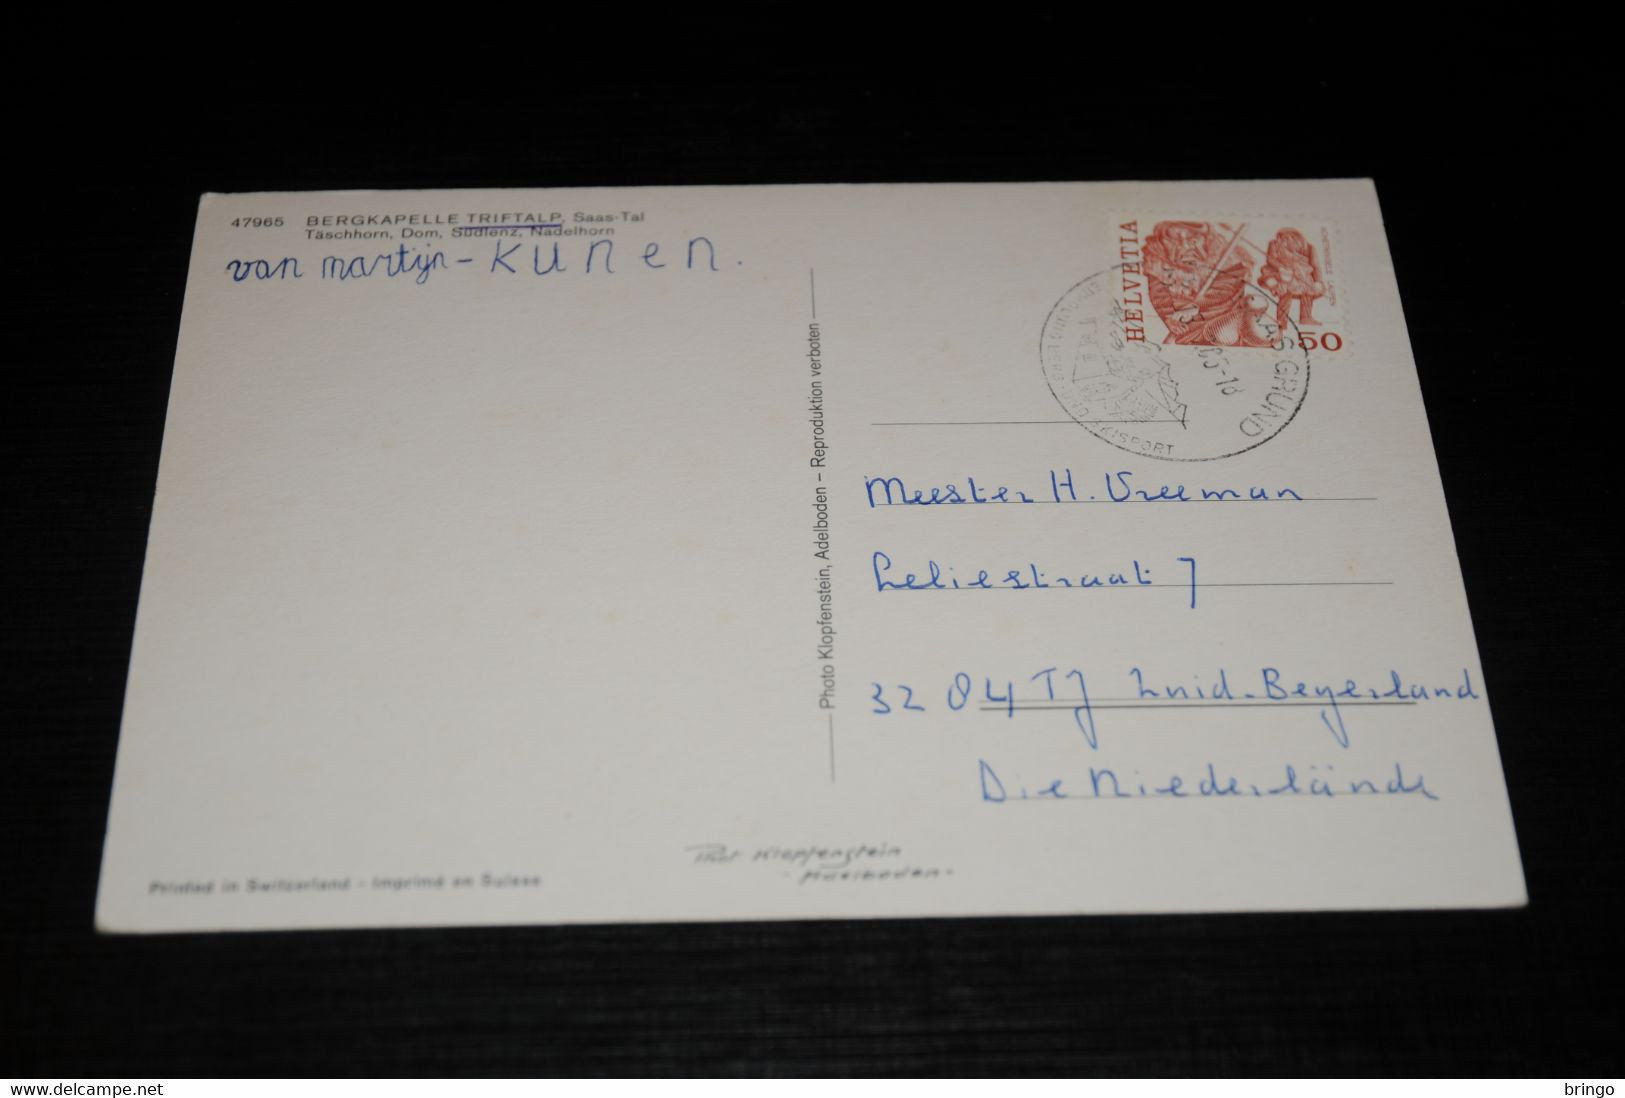 47965 BERGKAPELLE TRIFTALP, Saas-Tal
Täschhorn, Dom, Südlenz, Nadelhorn
van martijn - KUnen.
HELVETIA
50
SAAS-GRUND
SKISPORT
Photo Klopfenstein, Adelboden – Reproduktion verboten
Meester H. Vreeman
Leliestraat 7
3284 TJ Zuid-Beyerland
Die Niederlände
Phot. Klopfenstein
- Adelboden -
Printed in Switzerland - Imprimé en Suisse
delcampe.net
bringo